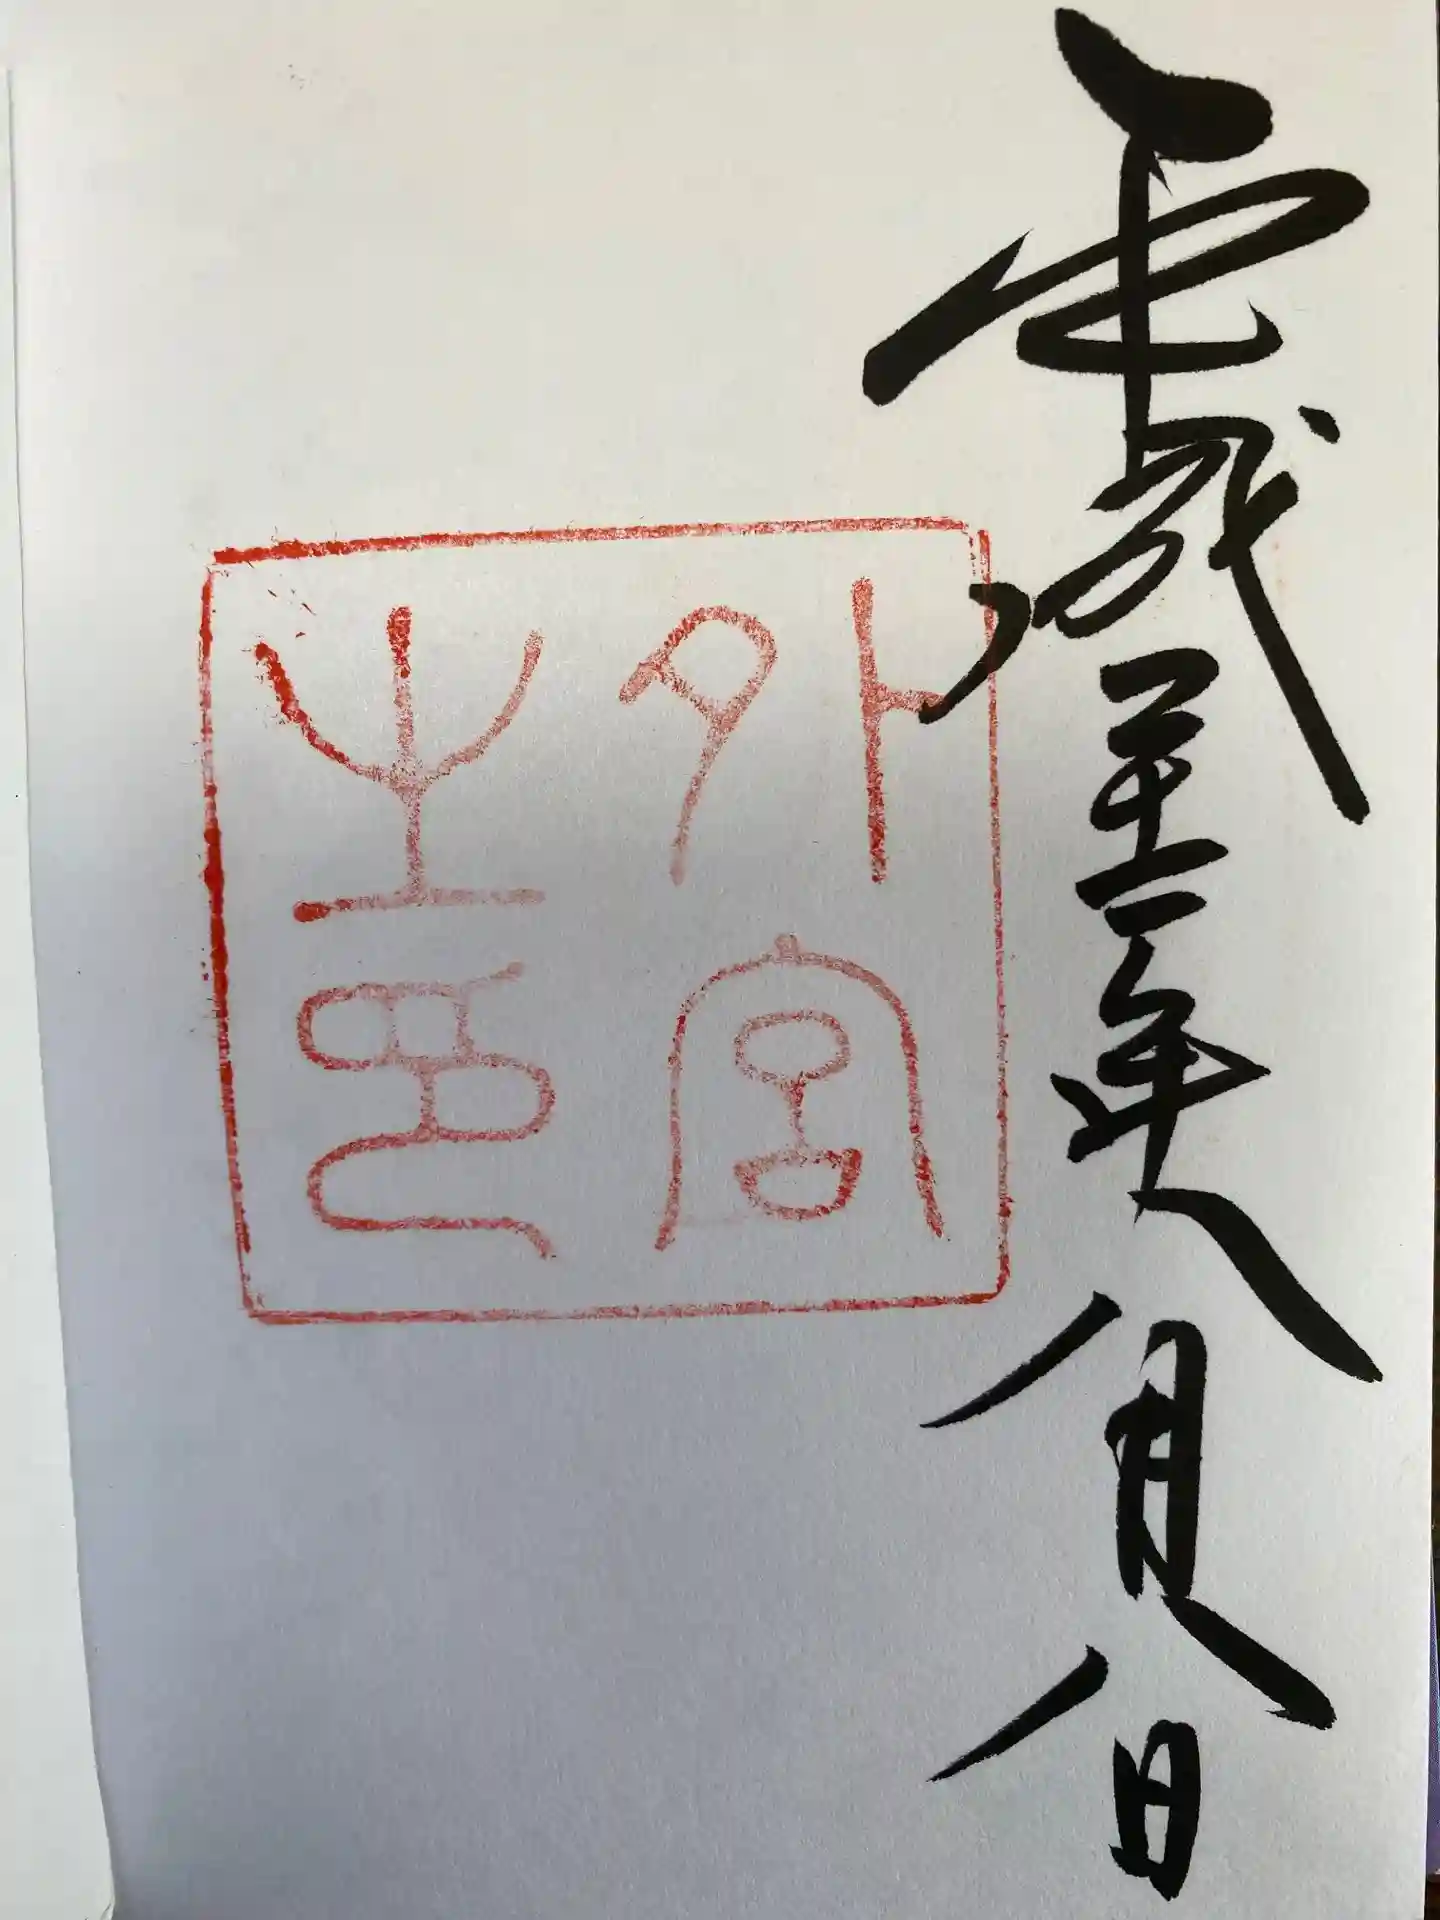 平成二十二年八月八日
外宮
之印